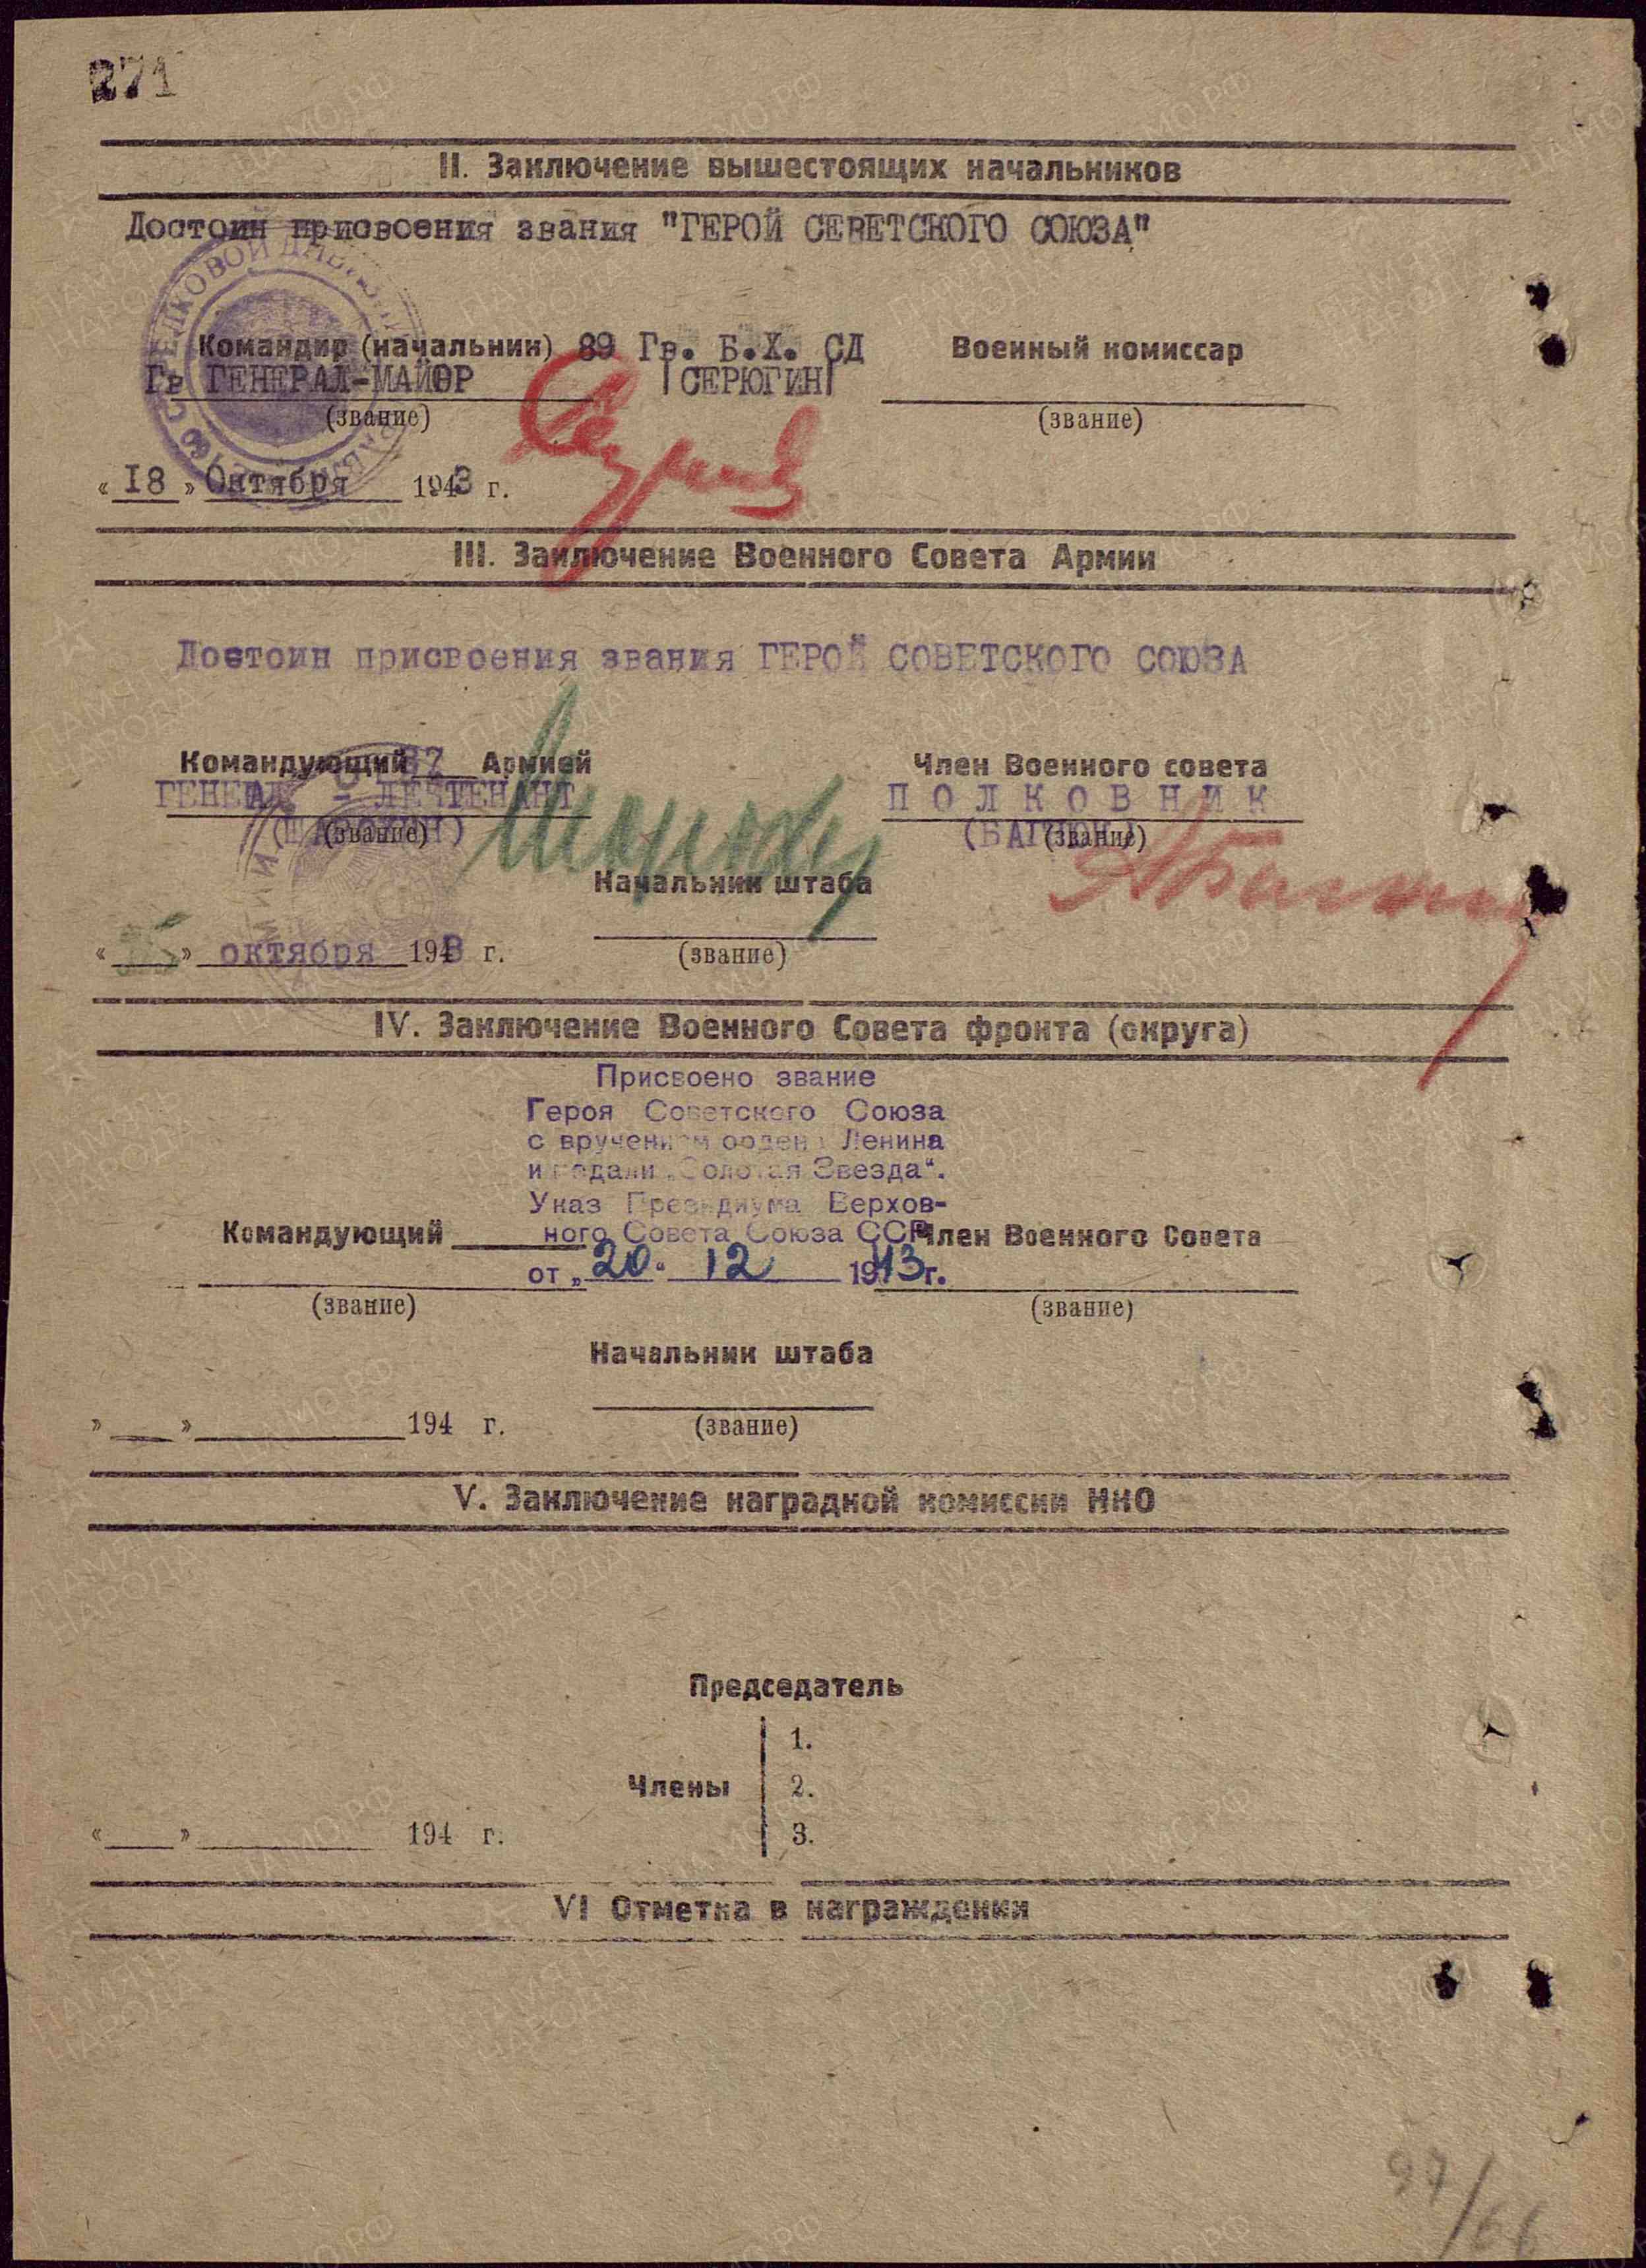 271
II. Заключение вышестоящих начальников
Достоин присвоения звания "ГЕРОЙ СЕВЕТСКОГО СОЮЗА"
Командир (начальник) 89 Гв. Б.Х. СД Военный комиссар
Гв ГЕНЕРАЛ-МАЙОР |СЕРЮГИН|
(звание) (звание)
«18» Октября 1943 г.
III. Заключение Военного Совета Армии
Достоин присвоения звания ГЕРОЙ СОВЕТСКОГО СОЮЗА
Командующий 37 Армией Член Военного совета
ГЕНЕРАЛ - ЛЕЙТЕНАНТ ПОЛКОВНИК
(звание) (звание)
Начальник штаба
« » октября 1943 г. (звание)
IV. Заключение Военного Совета фронта (округа)
Присвоено звание
Героя Советского Союза
с вручением ордена Ленина
и медали „Золотая Звезда“.
Указ Президиума Верхов-
ного Совета Союза ССР
Командующий Член Военного Совета
от „20“ 12 1943 г.
(звание) (звание)
Начальник штаба
» » 194 г. (звание)
V. Заключение наградной комиссии НКО
Председатель
1.
Члены 2.
« » 194 г. 3.
VI Отметка в награждении
97/66